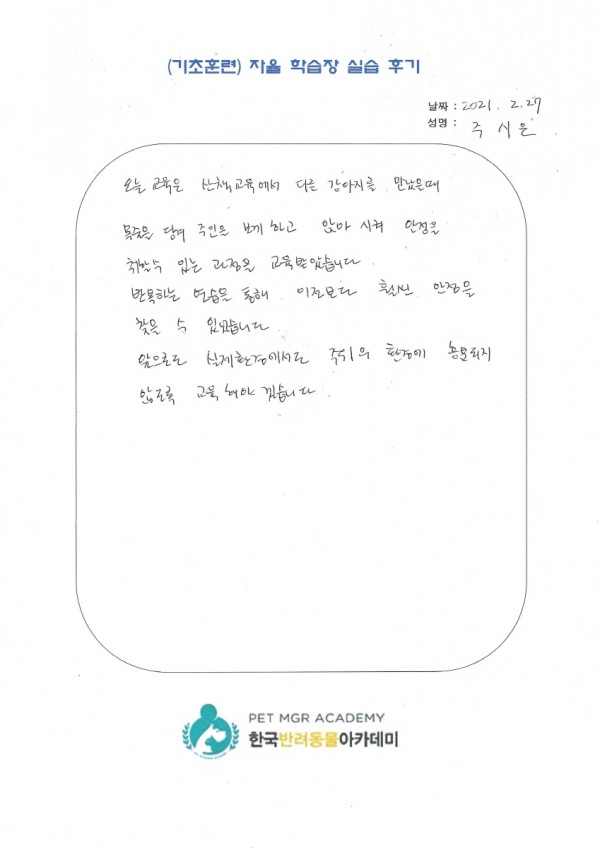 (기초훈련) 자율 학습장 실습 후기
날짜 : 2021. 2. 27
성명 : 주시은
오늘 교육은 산책교육에서 다른 강아지를 만났을때
목줄을 당겨 주인을 보게 하고 앉아 시켜 안정을
취할수 있는 과정을 교육받았습니다.
반복하는 연습을 통해 이전보다 훨씬 안정을
찾을 수 있었습니다.
앞으로도 실제환경에서도 주위의 환경에 흥분되지
않도록 교육해야 겠습니다.
PET MGR ACADEMY
한국반려동물아카데미